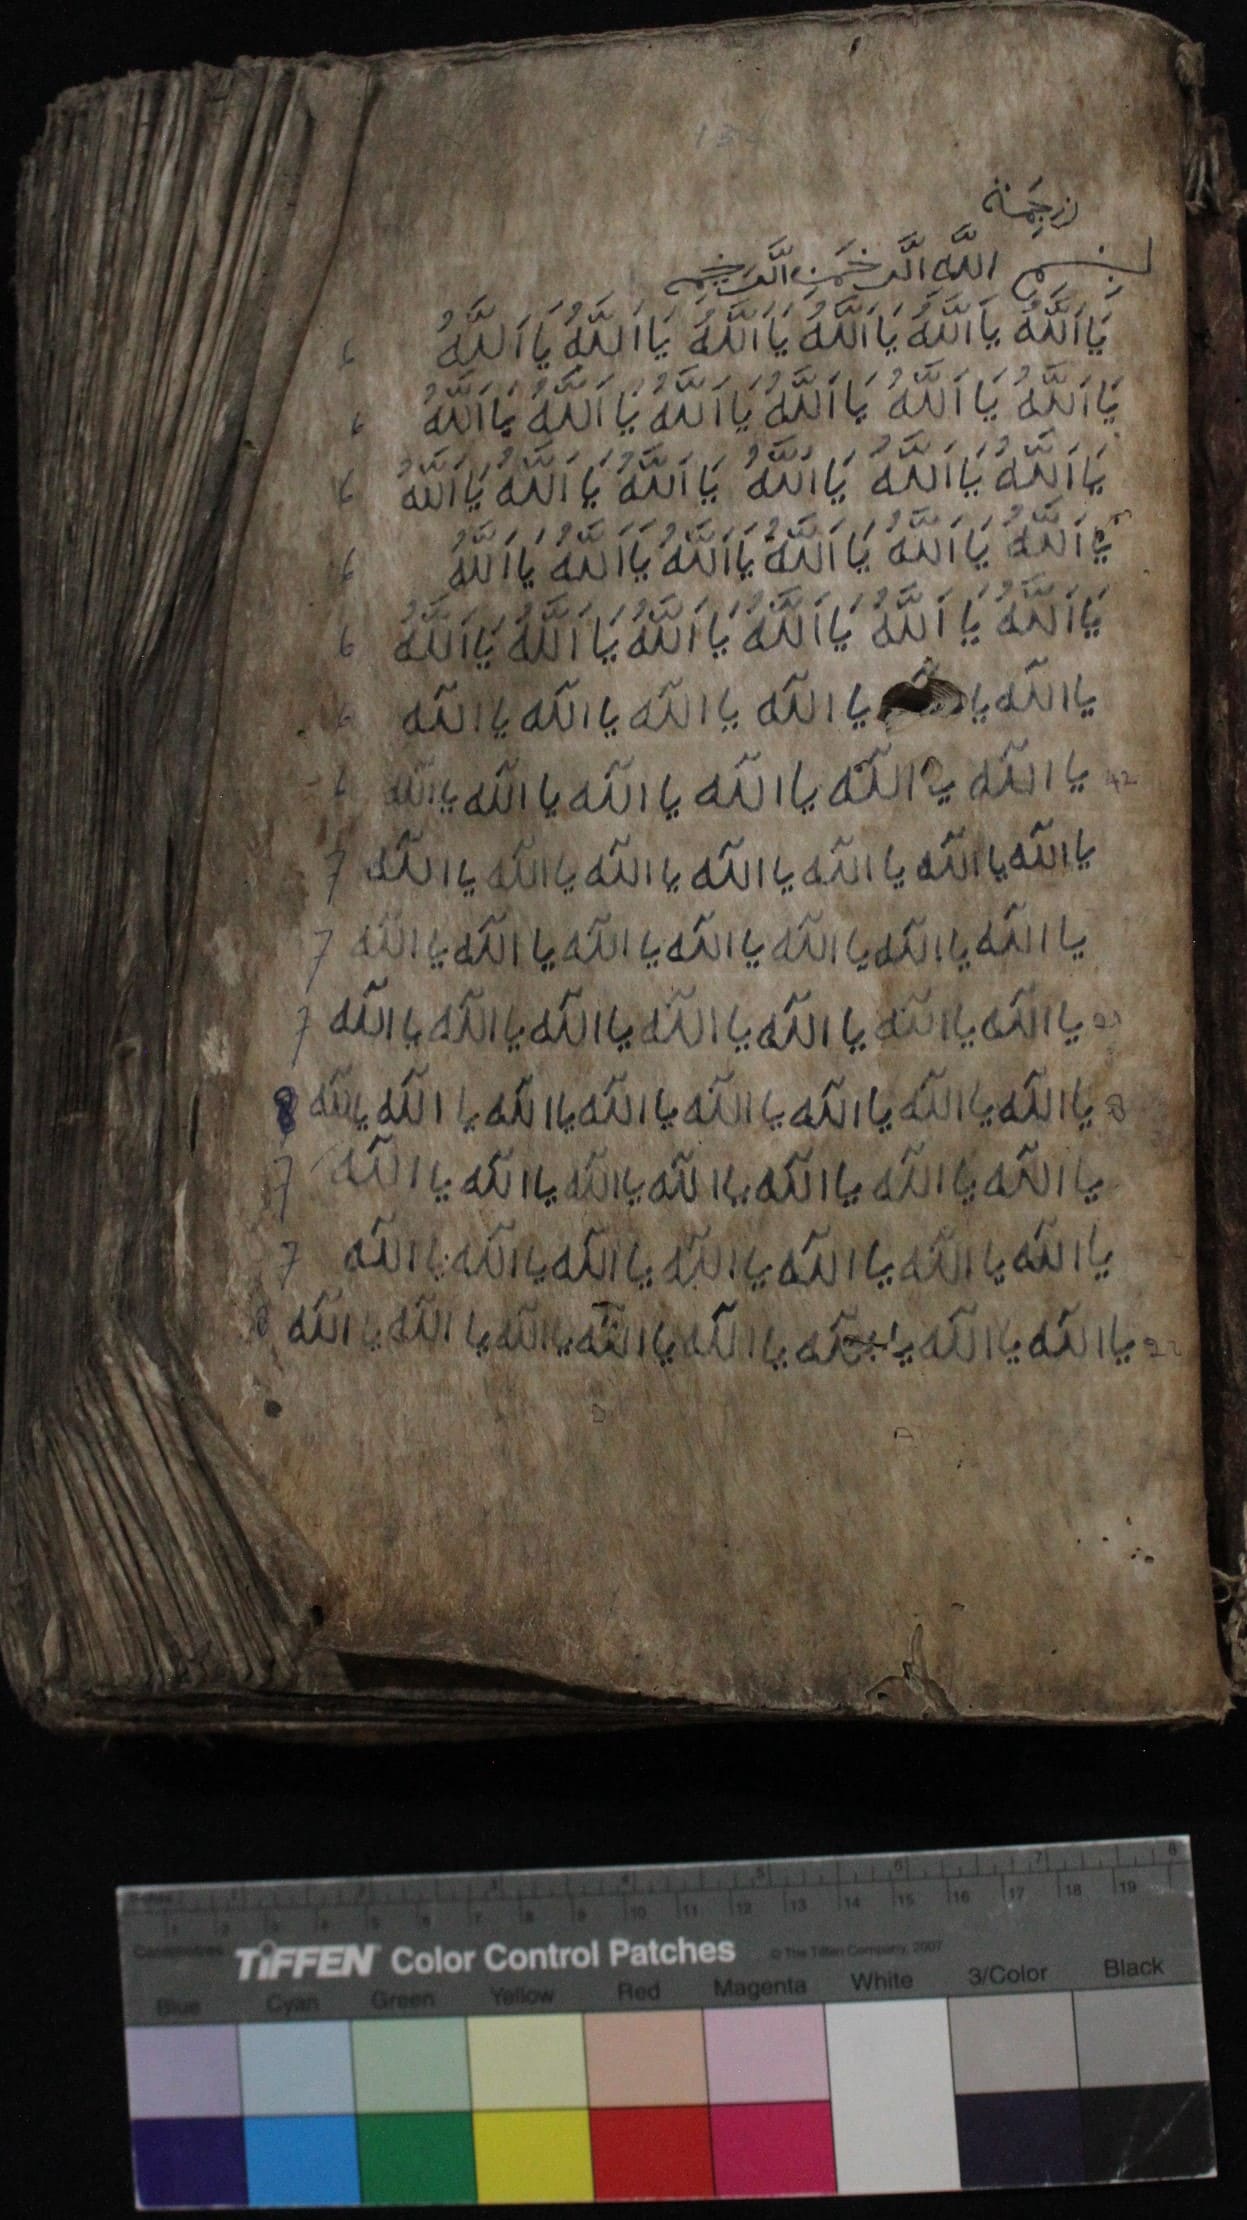 بِسْمِ اللَّهِ الرَّحْمَنِ الرَّحِيمِ
يَا اَللَّهُ يَا اَللَّهُ يَا اَللَّهُ يَا اَللَّهُ يَا اَللَّهُ يَا اَللَّهُ 6
يَا اَللَّهُ يَا اَللَّهُ يَا اَللَّهُ يَا اَللَّهُ يَا اَللَّهُ يَا اَللَّهُ 6
يَا اَللَّهُ يَا اَللَّهُ يَا اَللَّهُ يَا اَللَّهُ يَا اَللَّهُ يَا اَللَّهُ 6
يَا اَللَّهُ يَا اَللَّهُ يَا اَللَّهُ يَا اَللَّهُ يَا اَللَّهُ يَا اَللَّهُ 6
يَا اَللَّهُ يَا اَللَّهُ يَا اَللَّهُ يَا اَللَّهُ يَا اَللَّهُ يَا اَللَّهُ 6
يا الله يا يا الله يا الله يا الله يا الله 6
42 يا الله يا الله يا الله يا الله يا الله يا الله 6
يا الله يا الله يا الله يا الله يا الله يا الله يا الله 7
يا الله يا الله يا الله يا الله يا الله يا الله يا الله 7
يا الله يا الله يا الله يا الله يا الله يا الله يا الله 7
8 يا الله يا الله يا الله يا الله يا الله يا الله يا الله يا الله 8
يا الله يا الله يا الله يا الله يا الله يا الله يا الله 7
يا الله يا الله يا الله يا الله يا الله يا الله يا الله 7
22 يا الله يا الله يا الله يا الله يا الله يا الله يا الله يا الله 8
TIFFEN Color Control Patches © The Tiffen Company, 2007
Blue Cyan Green Yellow Red Magenta White 3/Color Black